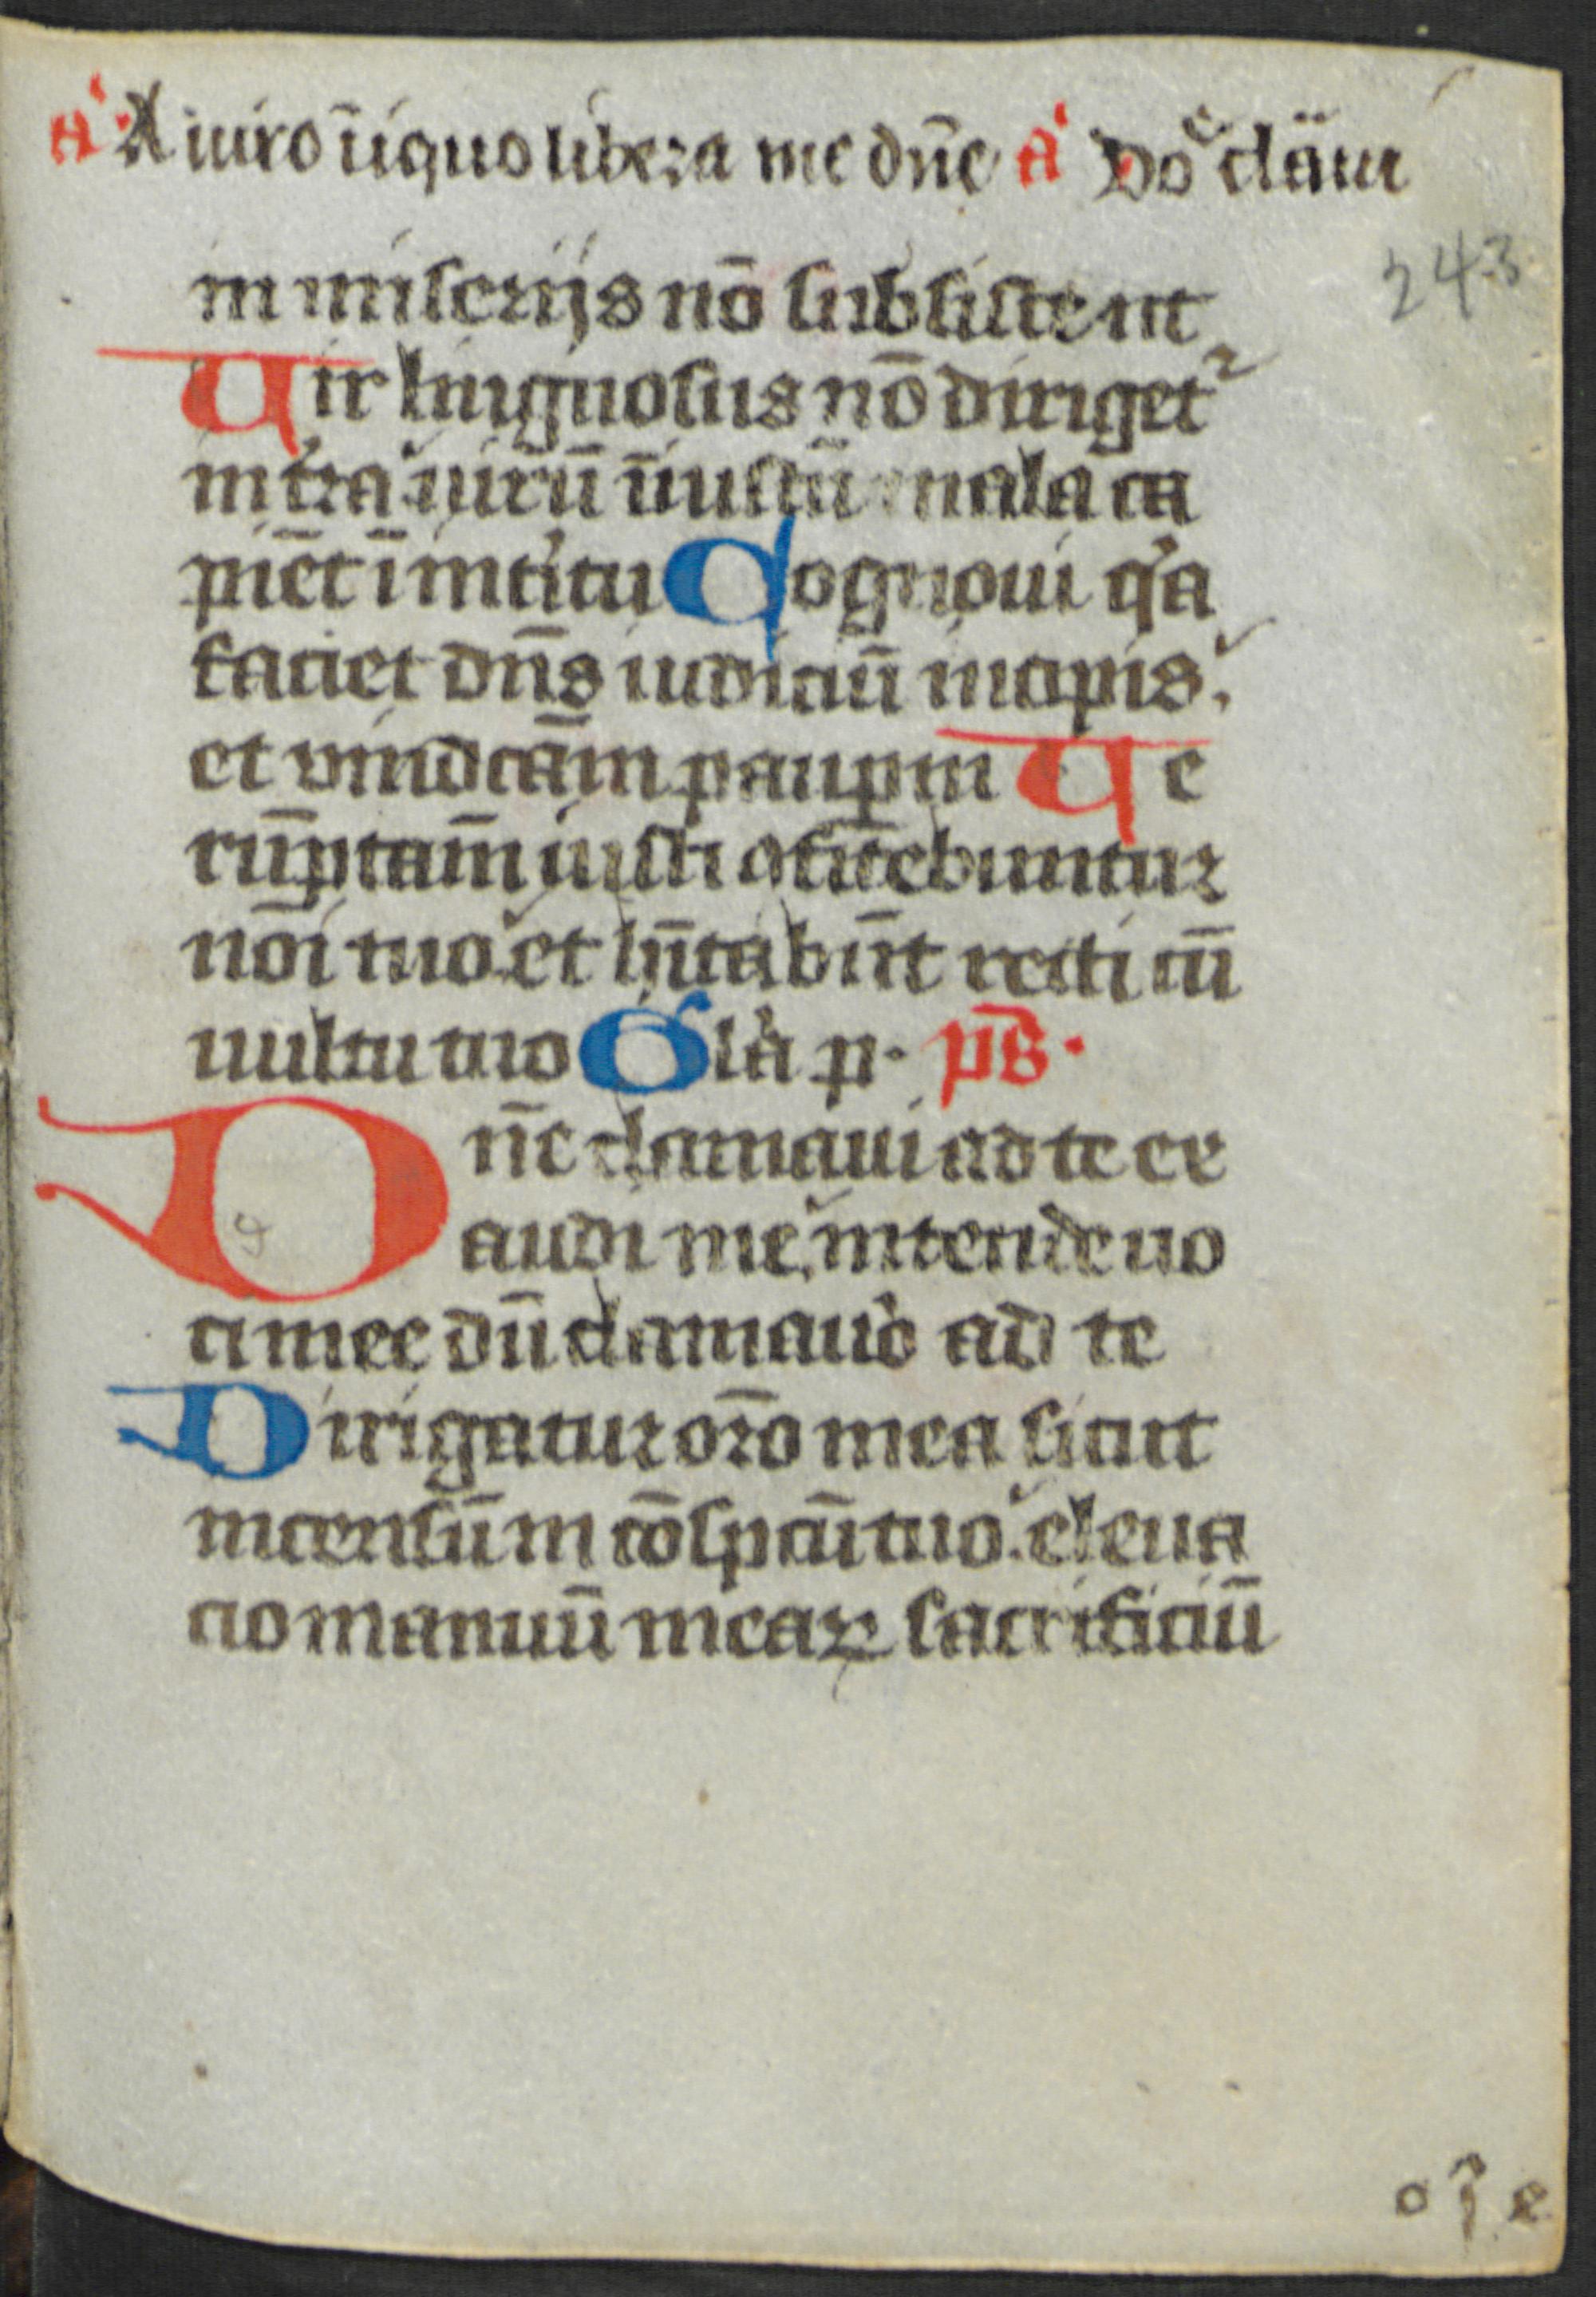 a' A uiro īiquo libera me dn̄e a' Dn̄e clāui
243
in miserijs nō subsistent
Uir linguosus nō dirigetᷣ
in t̄ra uirū īiustū mala ca
piēt ī int̄itu Cognoui q'a
faciet dn̄s iudiciū inopis
et vindcām paupm̄ Ue
rūptam̄ iusti ꝯfitebuntur
nōi tuo et hn̄tabūt recti cū
uultu tuo Gl'a p. ps̄.
Dn̄e clamaui ad te ex
audi me intende uo
ci mee dū clamau'o ad te
Dirigatur or̄o mea sicut
incensū in cōspcū tuo eleua
cio manuū mearꝝ sacrificiū